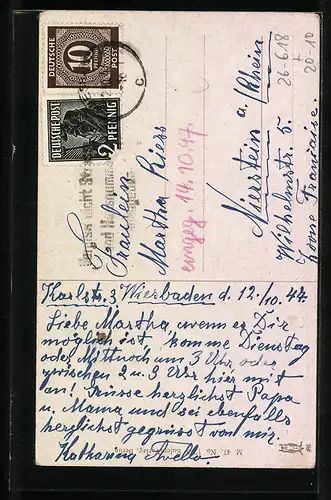 DEUTSCHE POST
10
PFENNIG
DEUTSCHE POST
2 PFENNIG
C
nicht Straße
und
Fräulein
Martha Riess
eingeg. 14.10.47.
Nierstein a./Rhein
Wilhelmstr. 5.
Zone Française.
26-6.18
+
20-10
Karlstr. 3 Wiesbaden d. 12/10. 47
Liebe Martha, wenn es Dir
möglich ist, komme Dienstag
oder Mittwoch um 3 Uhr, oder
zwischen 2 u. 3 Uhr hier mit
an! Grüsse herzlichst Papa
u. Mama und sei ebenfalls
herzlichst gegrüsst von mir.
Katharina
M. 47. No.